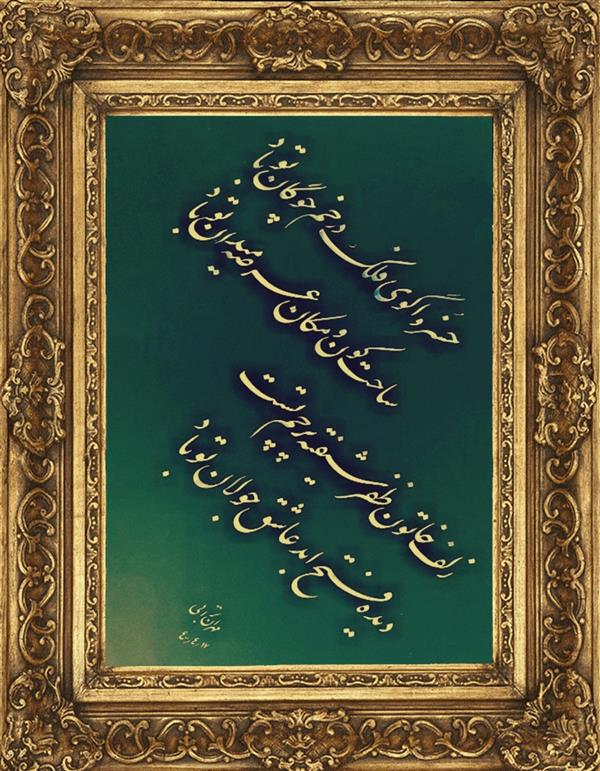 خسروا گوی فلک در خم چوگان تو باد
ساحت کون و مکان عرصه میدان تو باد
زلف خاتون ظفر شیفته پرچم تست
دیده فتح ابد عاشق جولان تو باد